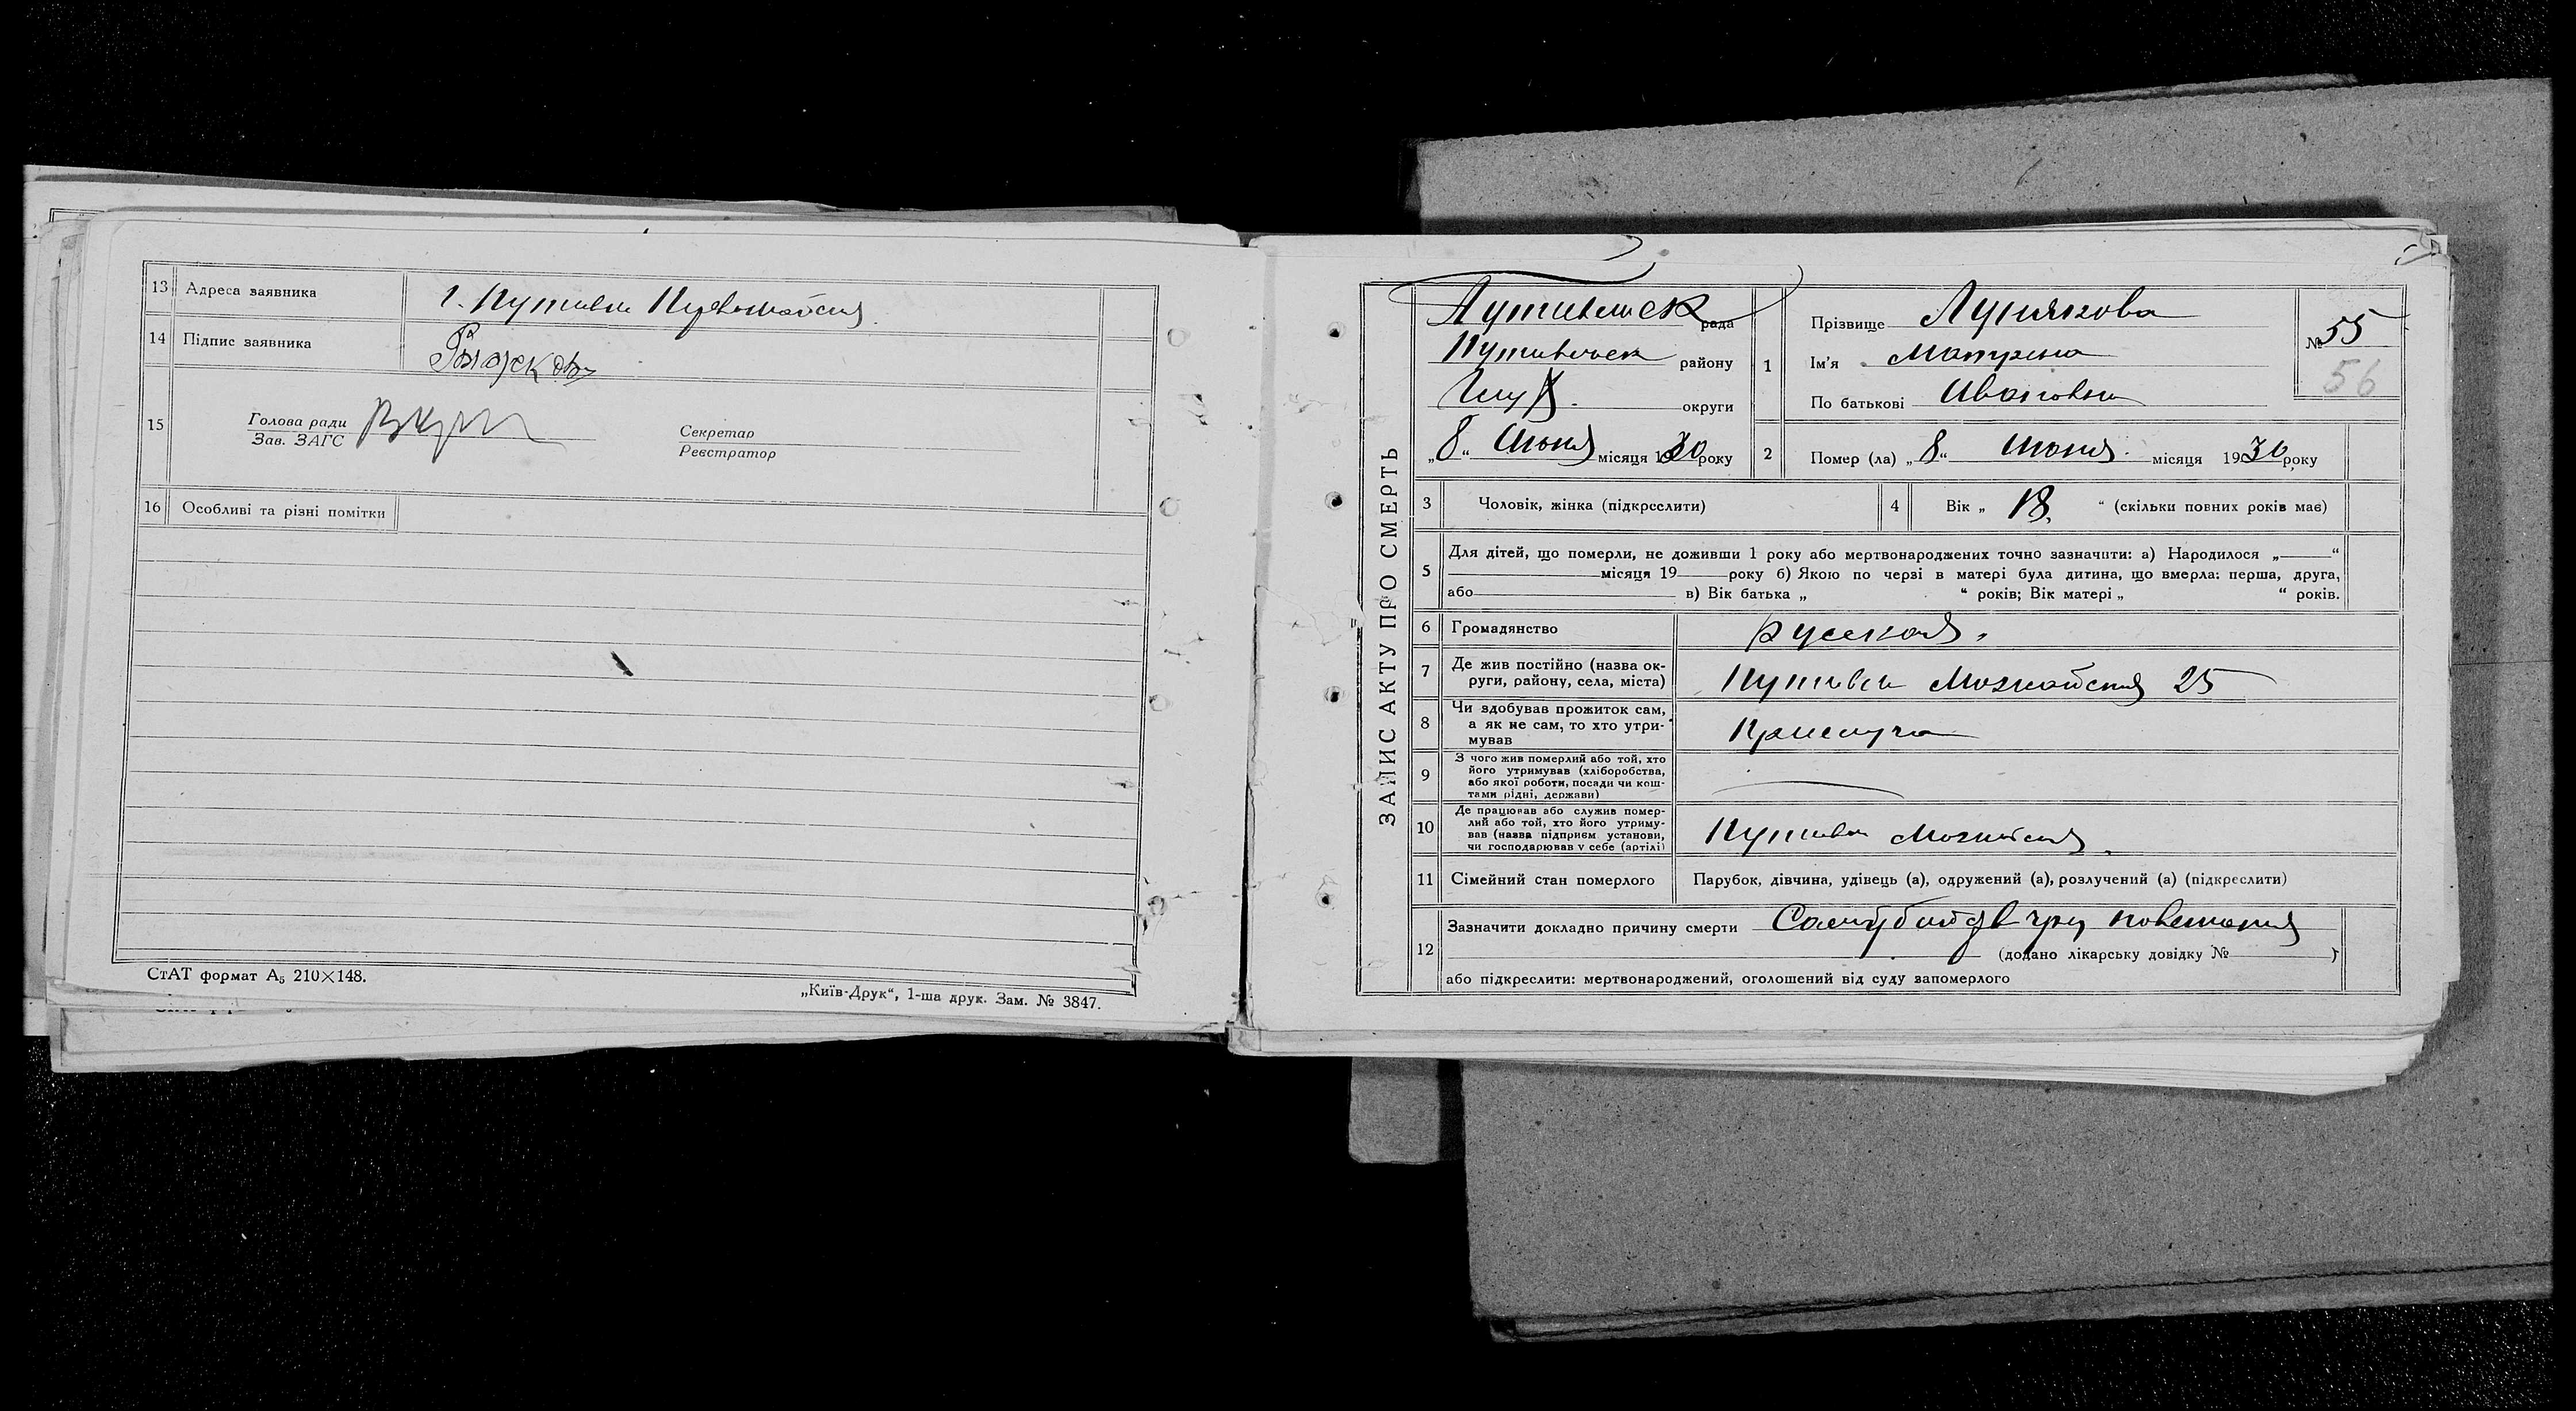 13 Адреса заявника г. Путивль Первомайская
14 Підпис заявника
15 Голова ради
Зав. ЗАГС
Секретар
Реєстратор
16 Особливі та різні помітки
СтАТ формат А₅ 210×148.
„Київ-Друк“, 1-ша друк. Зам. № 3847.
ЗАПИС АКТУ ПРО СМЕРТЬ
Путивльск рада
Путивльск району
округи
„8“ Июня місяця 1930 року
1 Прізвище
Ім'я Матрена
По батькові Ивановна
№ 55
56
2 Помер (ла) „8“ Июня місяця 1930 року
3 Чоловік, жінка (підкреслити)
4 Вік „18“ (скільки повних років має)
5 Для дітей, що померли, не доживши 1 року або мертвонароджених точно зазначити: а) Народилося „ “
місяця 19 року б) Якою по черзі в матері була дитина, що вмерла: перша, друга,
або в) Вік батька „ “ років; Вік матері „ “ років.
6 Громадянство русская.
7 Де жив постійно (назва ок-
руги, району, села, міста) Путивль 25
8 Чи здобував прожиток сам,
а як не сам, то хто утри-
мував Прислуга
9 З чого жив померлий або той, хто
його утримував (хліборобства,
або якої роботи, посади чи кош-
тами рідні, держави)
10 Де працював або служив помер-
лий або той, хто його утриму-
вав (назва підприєм установи,
чи господарював у себе (артілі) Путивль
11 Сімейний стан померлого Парубок, дівчина, удівець (а), одружений (а), розлучений (а) (підкреслити)
12 Зазначити докладно причину смерти
(додано лікарську довідку № )
або підкреслити: мертвонароджений, оголошений від суду запомерлого